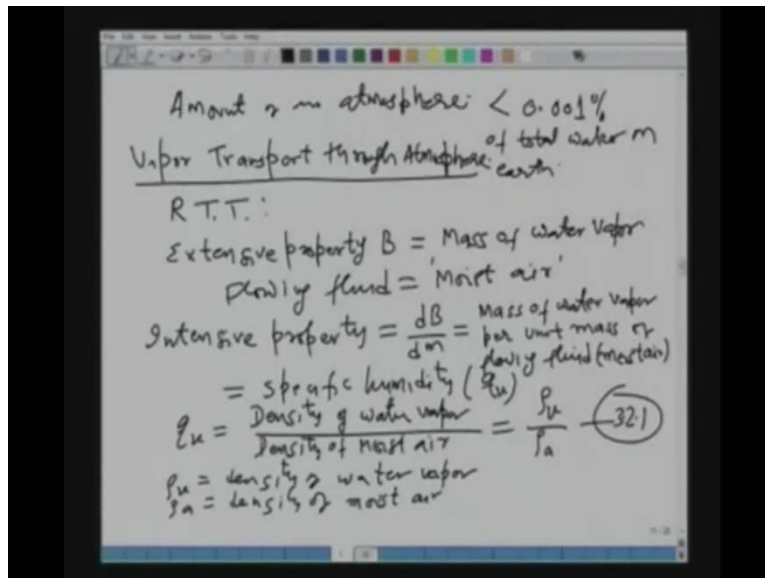 Amount of atmosphere: < 0.001%
of total water on
Vapor Transport through Atmosphere:
earth.
R T.T.:
Extensive property B = Mass of water vapor
flowing fluid = 'Moist air'
Intensive property = dB/dm = Mass of water vapor
per unit mass of
flowing fluid (moist air)
= specific humidity (qᵥ)
qᵥ = Density of water vapor / Density of Moist air = ρᵥ/ρₐ — 32.1
ρᵥ = density of water vapor
ρₐ = density of moist air